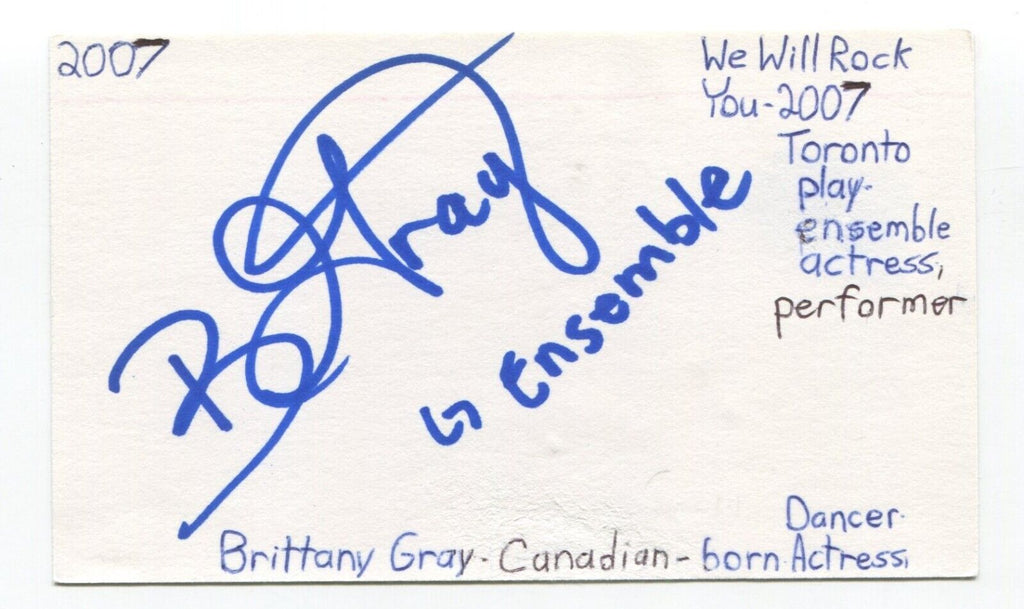 2007
We Will Rock
You-2007
Toronto
play-
ensemble
actress,
performer
B Gray
↳ Ensemble
Dancer.
Brittany Gray - Canadian - born Actress,